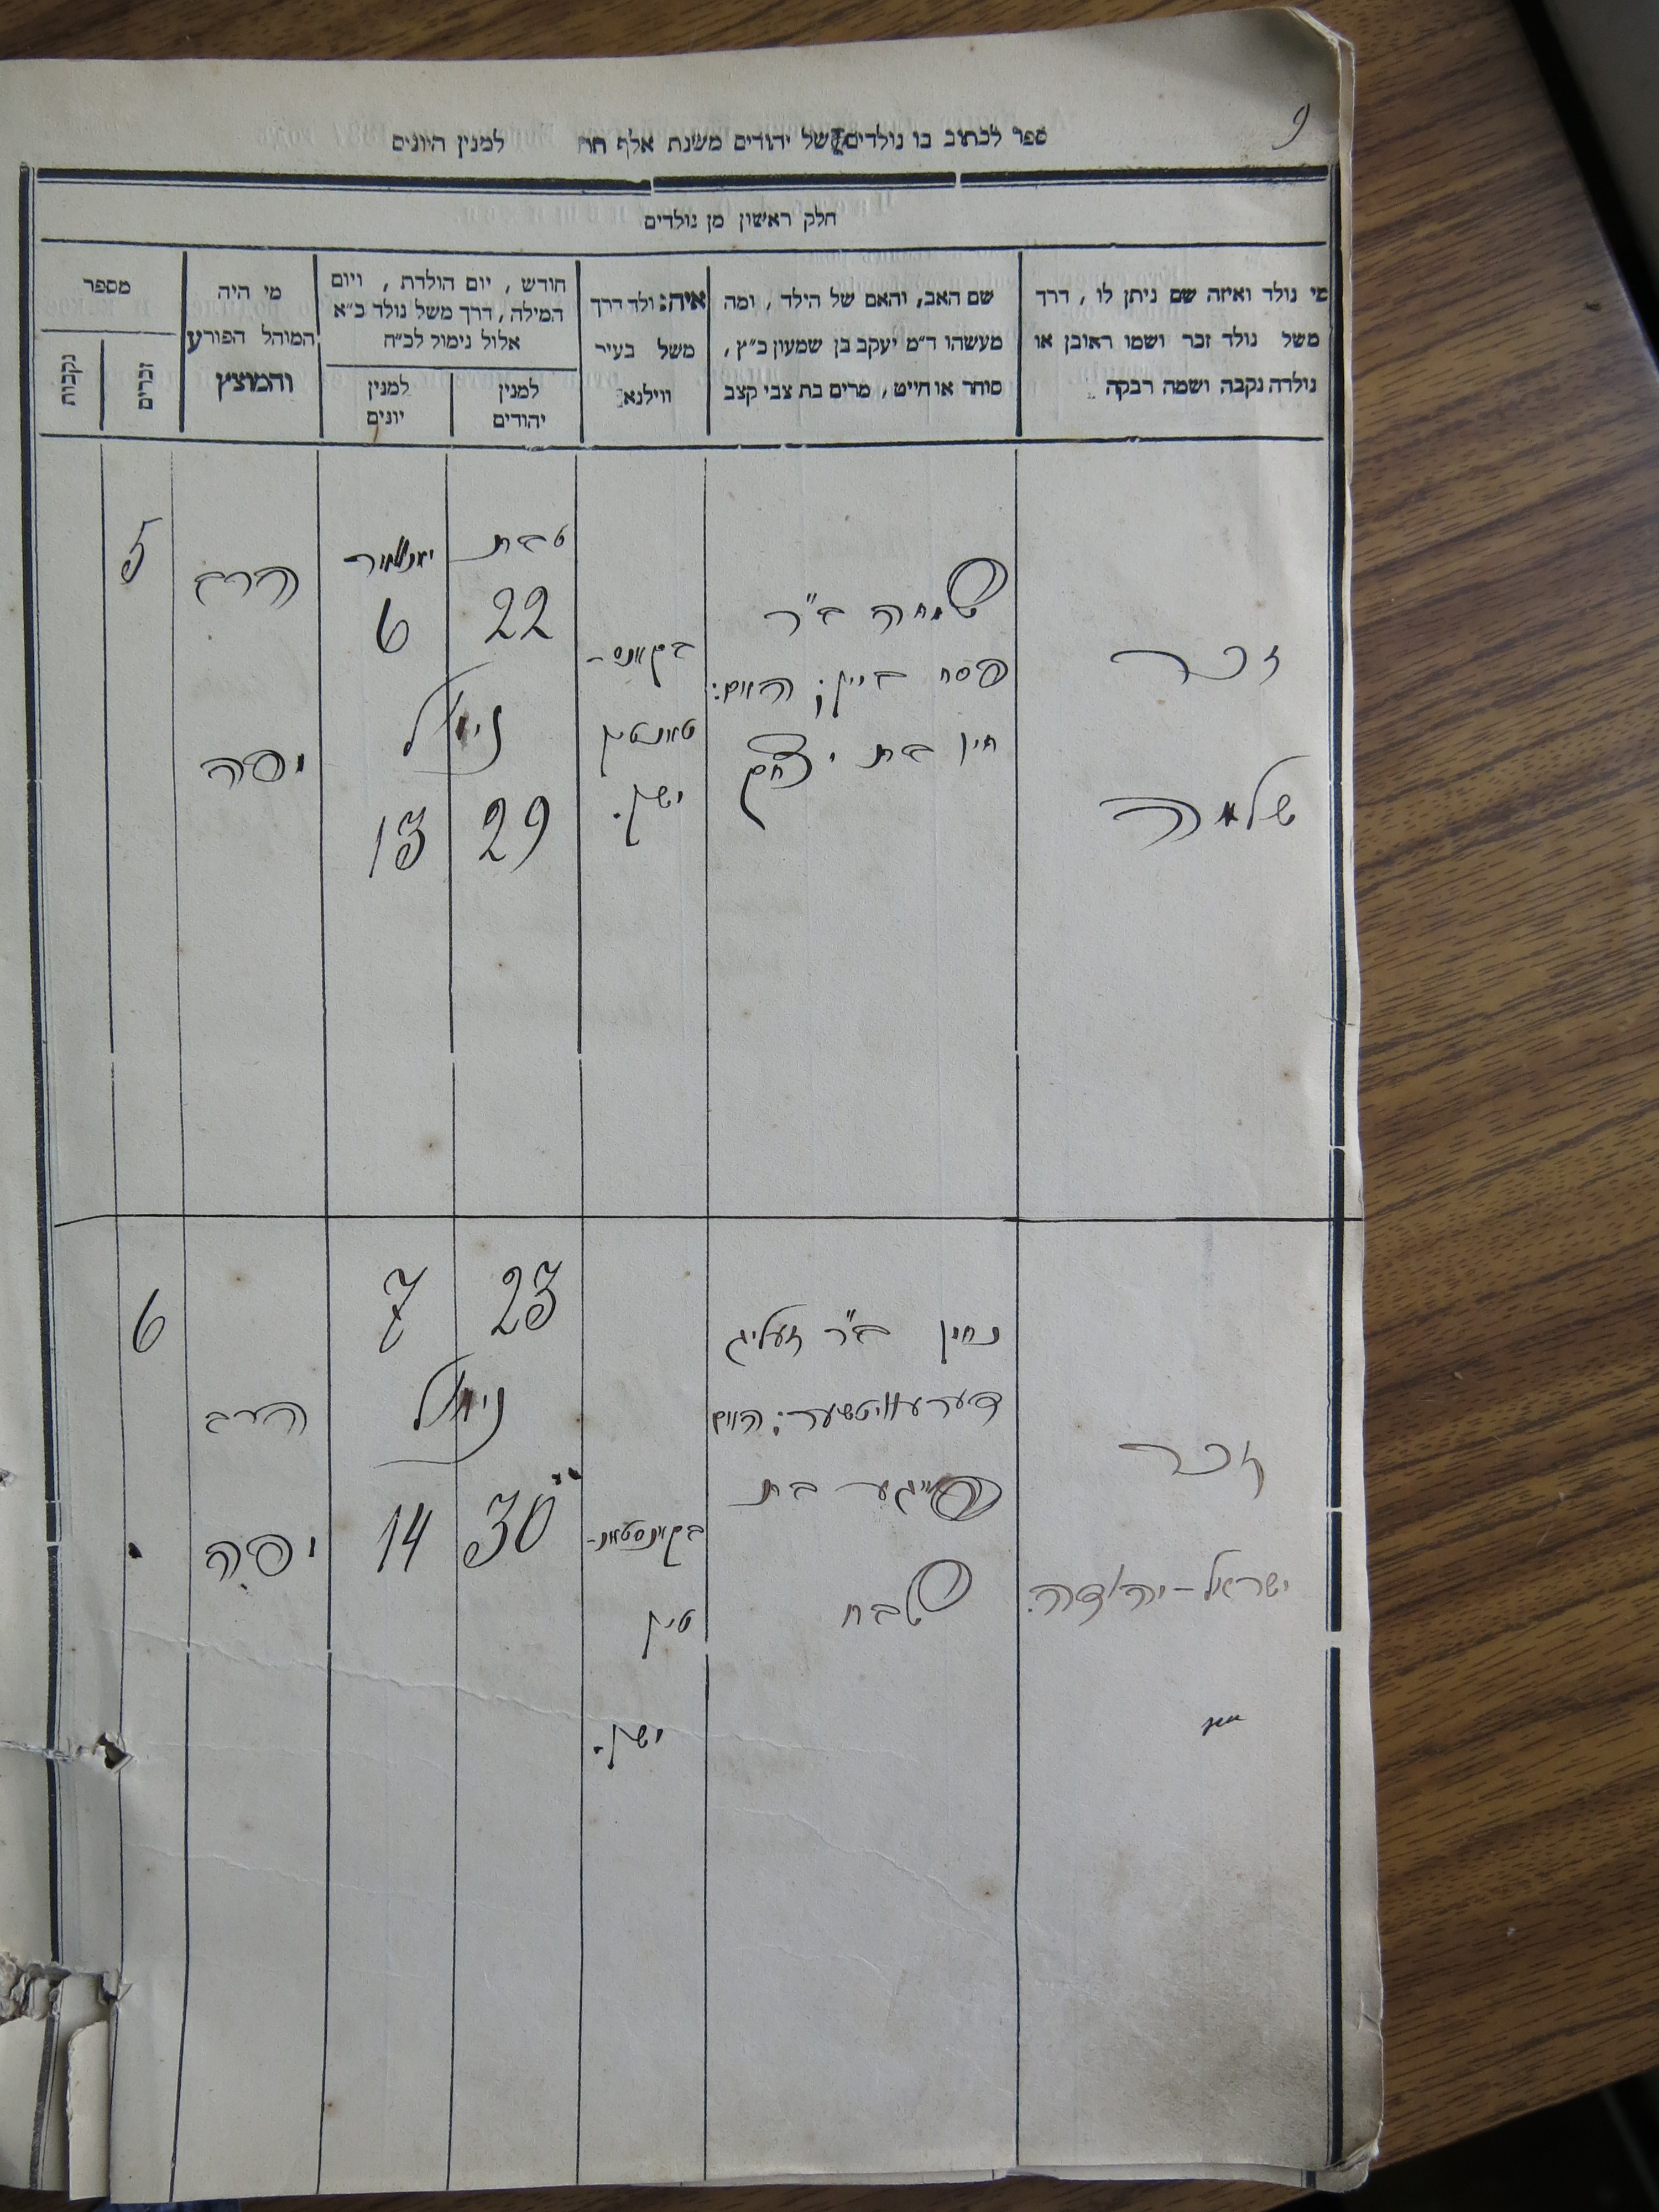 9
ספר לכתוב בו נולדים של יהודים משנת אלף תת למנין היונים
חלק ראשון מן נולדים
מי נולד ואיזה שם ניתן לו, דרך
משל נולד זכר ושמו ראובן או
נולדה נקבה ושמה רבקה
שם האב, והאם של הילד, ומה
מעשהו ד״מ יעקב בן שמעון כ״ץ,
סוחר או חייט, מרים בת צבי קצב
איה: ולד דרך
משל בעיר
ווילנא
חודש, יום הולדת, ויום
המילה, דרך משל נולד כ״א
אלול נימול לכ״ח
למנין
יהודים
למנין
יונים
מי היה
המוהל הפורע
והמוצץ
מספר
זכרים
נקבות
זכר
שלמה
שמחה ב״ר
פסח
חין בת יצחק
בקאנס-
טאנטין
ישן.
טבת
22
יאנואר
6
נימול
29
13
הרב
יפה
5
זכר
ישראל-יהודה.
נחמן ב״ר זעליג
דערעוויטשער: האם
פייגע בת
שבח
בקאנסטאנ-
טין
ישן.
23
7
נימול
30
14
הרב
יפה
6